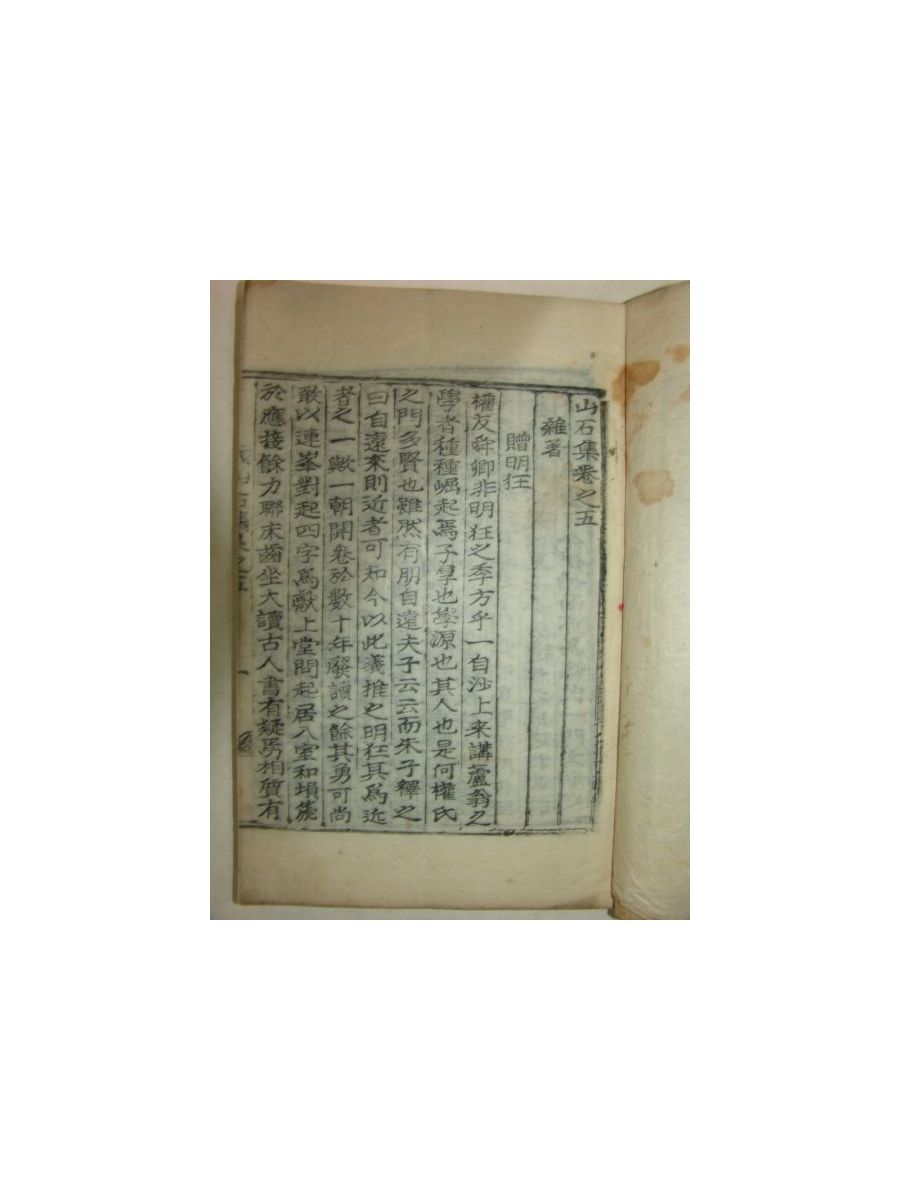 山石集卷之五
雜著
贈明狂
權友舜卿非明狂之季方乎一自沙上来講蘆翁之
學者種種崛起焉子孚也學源也其人也是何權氏
之門多賢也雖然有朋自遠夫子云云而朱子釋之
曰自遠来則近者可知今以此義推之明狂其爲近
者之一歟一朝開卷於數十年廢讀之餘其勇可尚
敢以連峯對起四字爲獻上堂問起居入室和塤篪
於應接餘力聯床齒坐大讀古人書有疑焉相質有